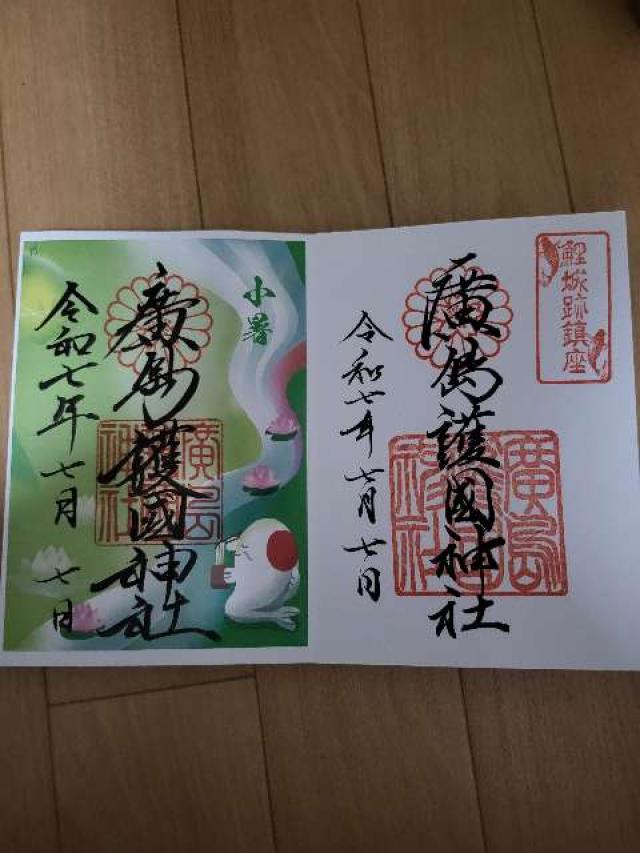 鯉城跡鎮座
廣島護國神社
廣島護國神社
令和七年七月七日
小暑
廣島護國神社
廣島護國神社
令和七年七月七日